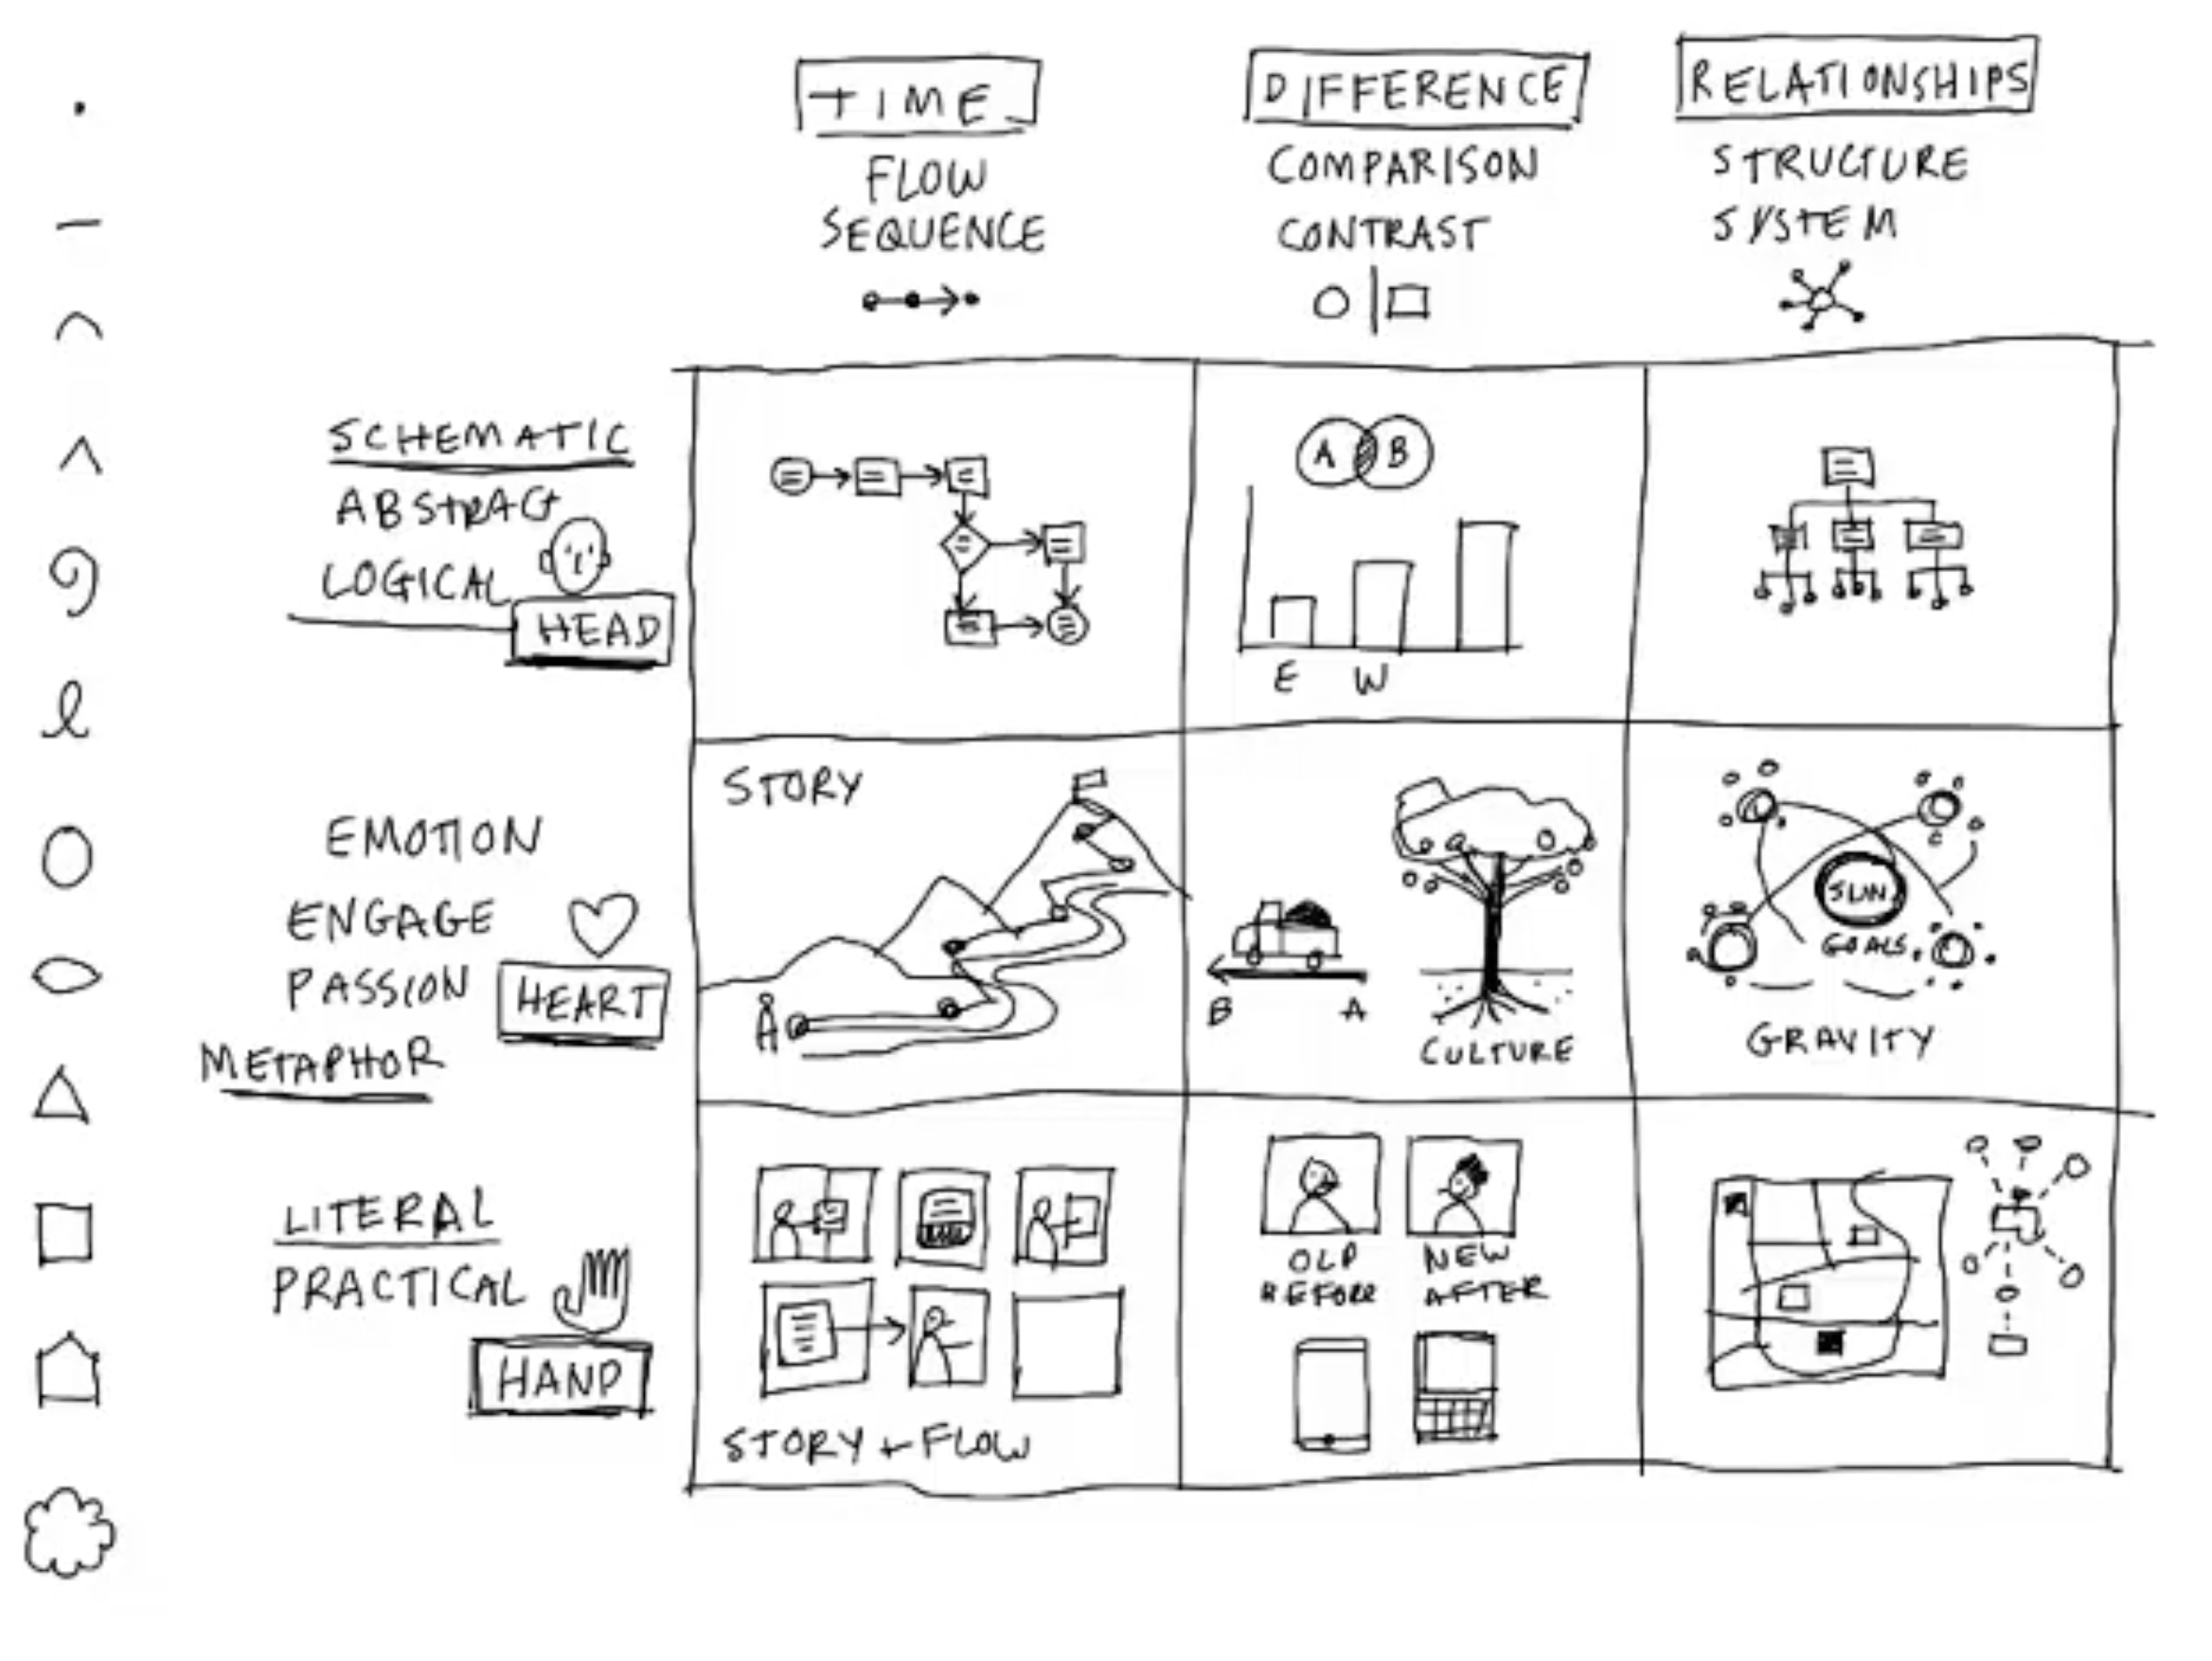 TIME
FLOW
SEQUENCE
DIFFERENCE
COMPARISON
CONTRAST
RELATIONSHIPS
STRUCTURE
SYSTEM
SCHEMATIC
ABSTRACT
LOGICAL
HEAD
A B
E W
EMOTION
ENGAGE
PASSION
HEART
METAPHOR
STORY
B A
CULTURE
SUN
GOALS
GRAVITY
LITERAL
PRACTICAL
HAND
STORY + FLOW
OLD
BEFORE
NEW
AFTER